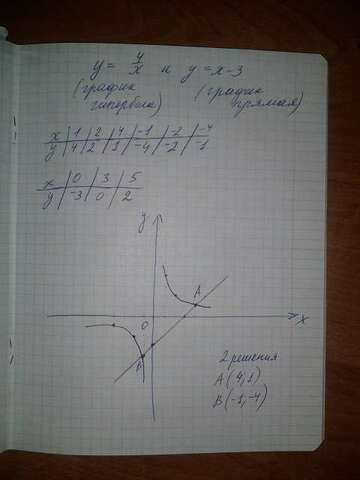 y = 4/x и y = x-3
(график гипербола) (график прямая)
x | 1 | 2 | 4 | -1 | -2 | -4
y | 4 | 2 | 1 | -4 | -2 | -1
x | 0 | 3 | 5
y | -3 | 0 | 2
y
A
0
x
B
2 решения
A(4,1)
B(-1,-4)